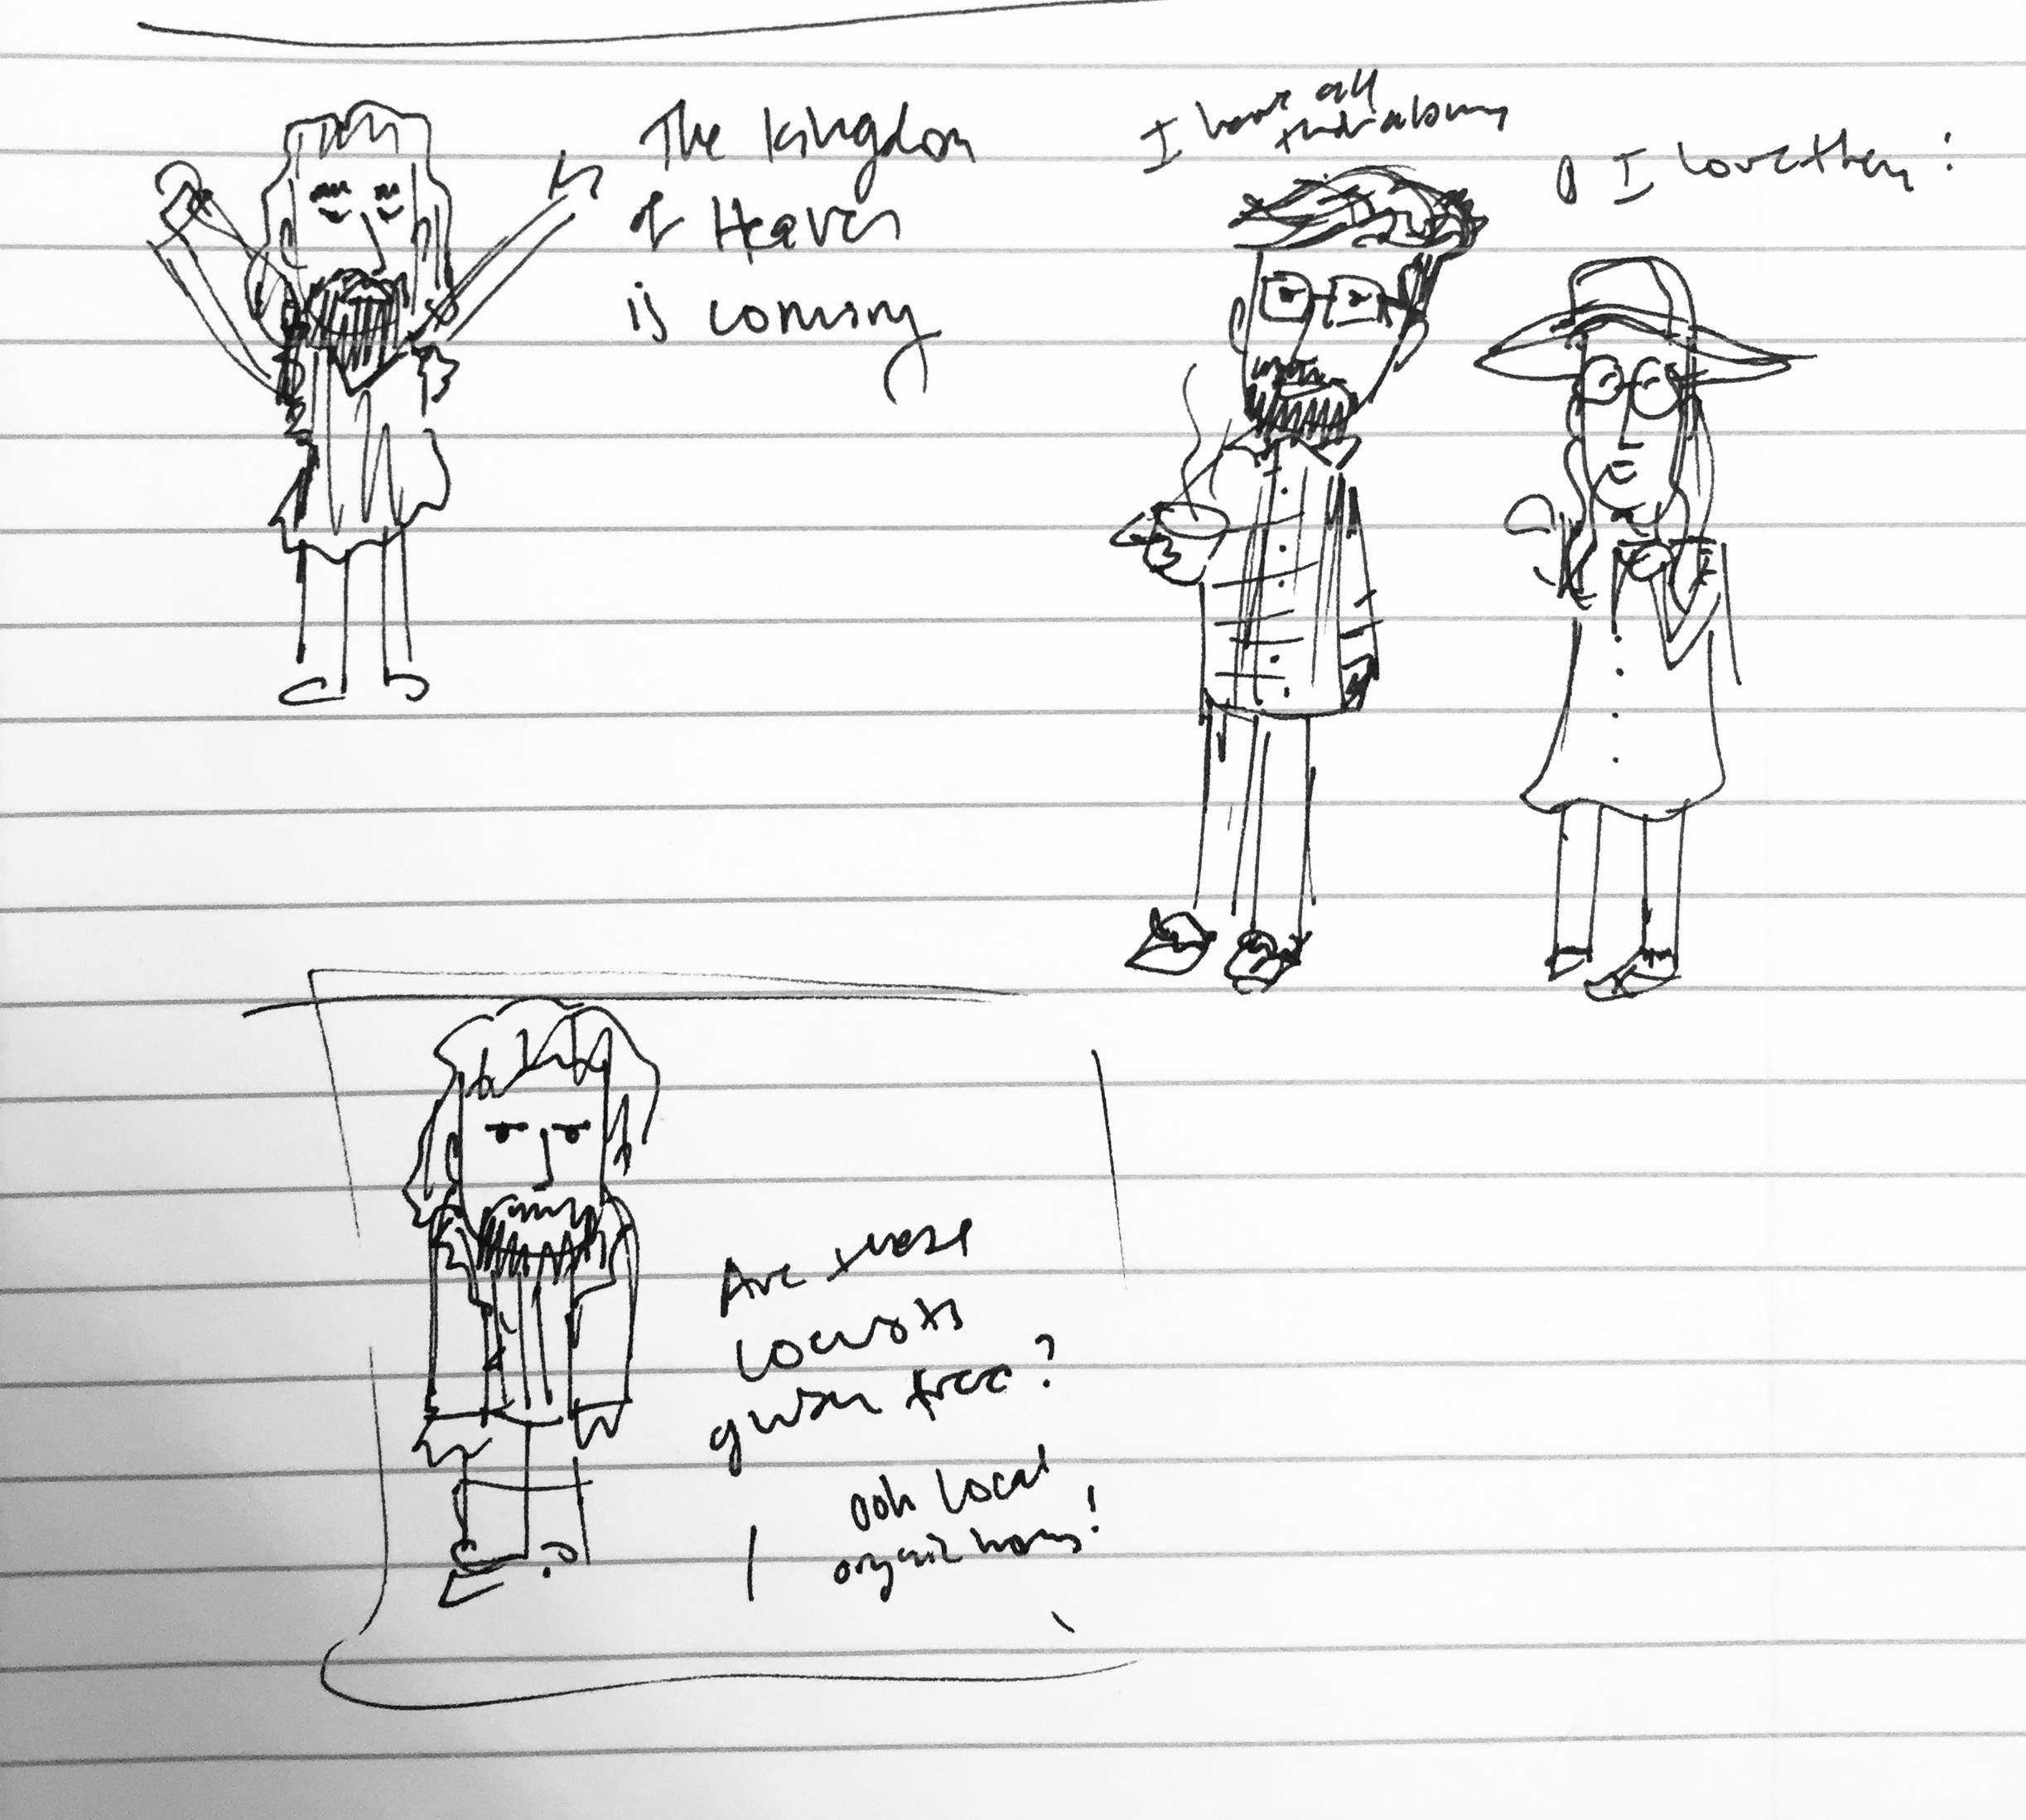 The Kingdom
of Heaven
is coming
I have all
their albums
O I love them!
Are these
locusts
gluten free?
ooh local
organic honey!